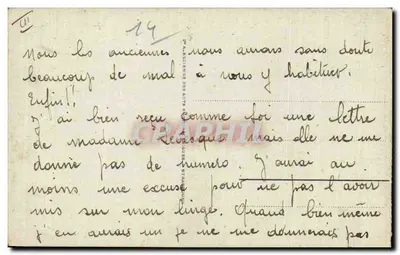 III
14
Nous les anciennes nous aurons sans doute
beaucoup de mal à nous y habituer.
Enfin!!
J'ai bien reçu comme toi une lettre
de madame mais elle ne me
donne pas de numero. J'aurai au
moins une excuse pour ne pas l'avoir
mis sur mon linge. Quand bien même
j'en aurais un je ne me donnerais pas